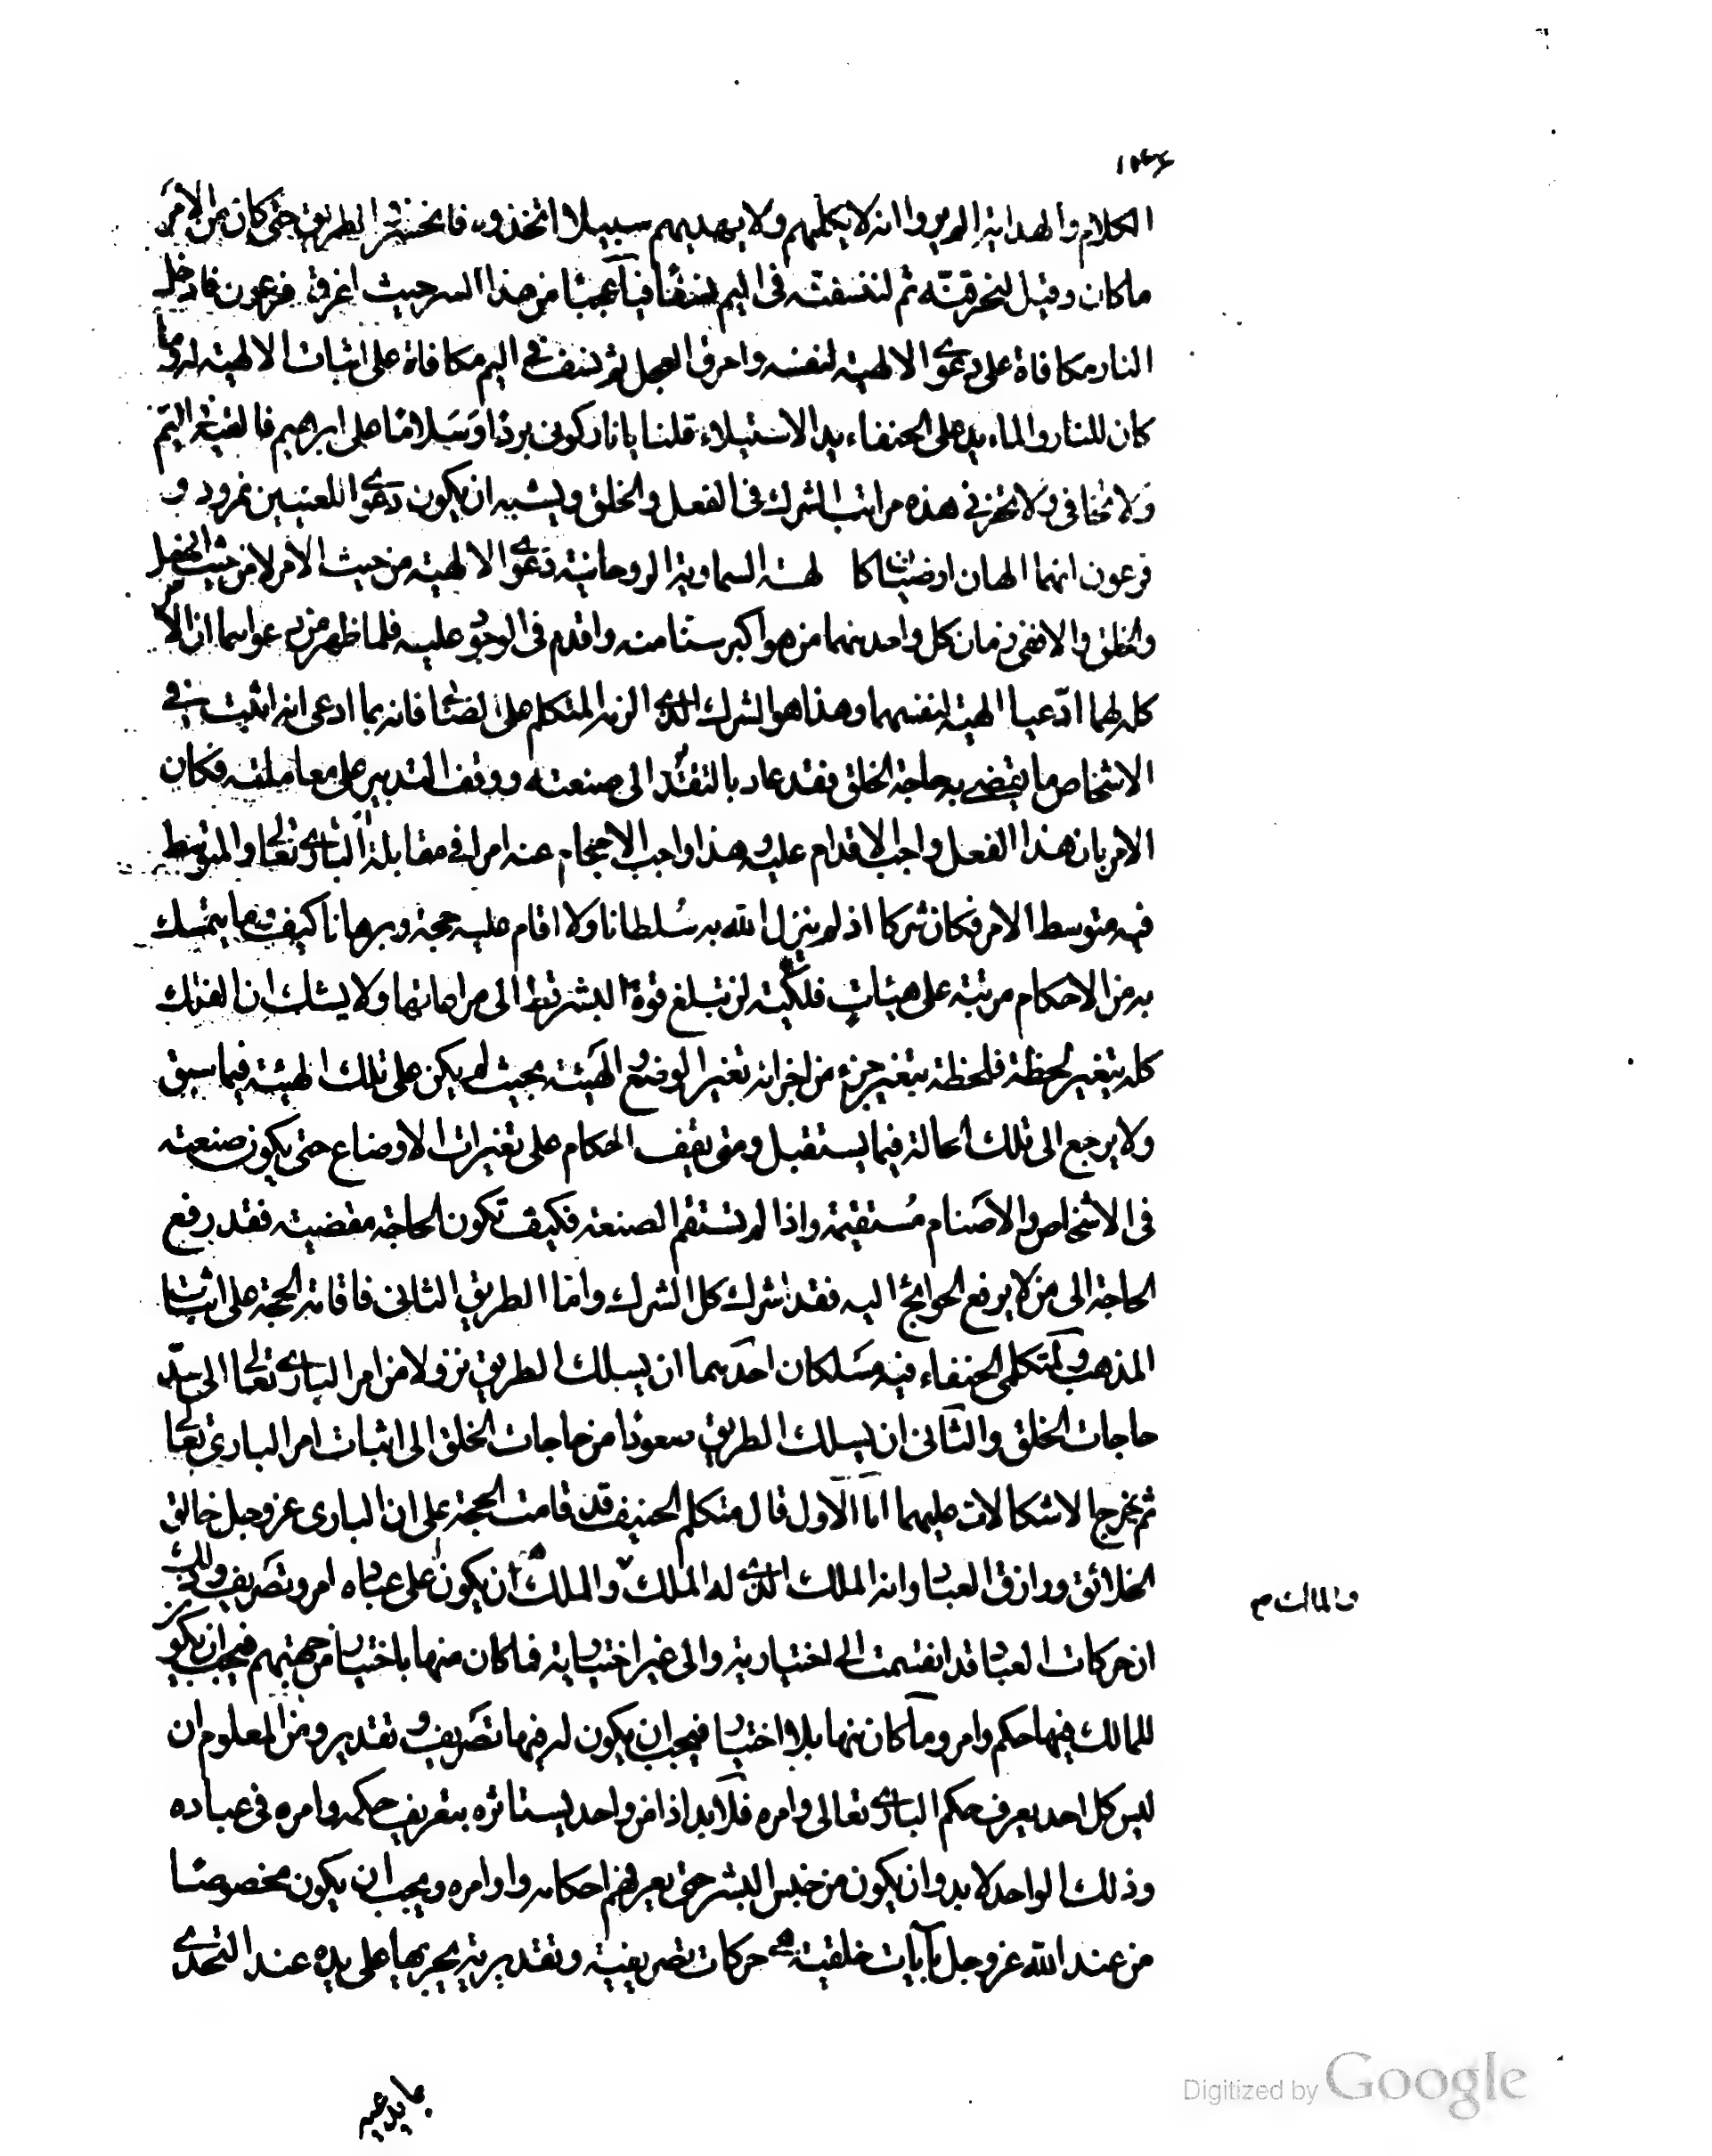 الكلام والهداية الم يروا انه لا يكلمهم ولا يهديهم سبيلا اتخذوه فانحسر الطريق حتى كان من الامر
ما كان وقيل لنحرقنه ثم لننسفنه في اليم نسفا فيا عجبا من هذا السر حيث اغرق فرعون فادخل
النار مكافاة على دعوى الالهية لنفسه واحرق العجل ثم نسف في اليم مكافاة على اثبات الالهية له وما
كان للنار والماء يد على الحنفاء يد الاستيلاء قلنا يا نار كوني بردا وسلاما على ابرهيم فالقيه في اليم
ولا تخافي ولا تحزني هذه مراتب الشرك في الفعل والخلق ويشبه ان يكون دعوى اللعينين نمرود و
فرعون انهما الهان ارضيان كا لهة السماوية الروحانية دعوى الالهية من حيث الامر لا من حيث الفعل
والخلق والا ففي زمان كل واحد منهما من هو اكبر سنا منه واقدم في الوجود عليه فلما ظهر من دعواهما ان الامر
كله لهما ادعيا الهية لنفسهما وهذا هو الشرك الذي الزمه المتكلم على الصابئ فانه بما ادعى انه اثبت في
الاشخاص ما يقضي به حاجة الخلق فقد عاد بالتقدير الى صنعته ووقف التدبير على معاملته فكان
الامر بان هذا الفعل واجب الاقدام عليه وهذا واجب الاحجام عنه امرا في مقابلة امر الباري تعالى والمتوسط
فيه متوسط الامر فكان شركا اذ لم ينزل الله به سلطانا ولا اقام عليه حجة وبرهانا كيف وما يتمسك
به من الاحكام مرتبة على هيئات فلكية لم تبلغ قوة البشر قط الى مراعاتها ولا يشك ان الفلك
كله يتغير لحظة فلحظة بتغير جزء من اجزائه تغير الوضع والهيئة بحيث لم يكن على تلك الهيئة فيما سبق
ولا يرجع الى تلك الحالة فيما يستقبل ومتى يقف الحكام على تغيرات الاوضاع حتى يكون صنعته
في الاشخاص والاصنام مستقيمة واذا لم تستقم الصنعة فكيف تكون الحاجة مقضية فقد رفع
الحاجة الى من لا يرفع الحوائج اليه فقد اشرك كل الشرك واما الطريق الثاني فاقامة الحجة على اثبات
المذهب ولمتكلمي الحنفاء فيه مسلكان احدهما ان يسلك الطريق نزولا من امر الباري تعالى الى سد
حاجات الخلق والثاني ان يسلك الطريق صعودا من حاجات الخلق الى اثبات امر الباري تعالى
ثم يخرج الاشكالات عليهما اما الاول قال متكلم الحنيف قد قامت الحجة على ان الباري عز وجل خالق
الخلائق ورازق العباد وانه الملك الذي له الملك والملك ان يكون على عباده امر وتصريف وذلك
والمالك م
ان حركات العباد قد انقسمت الى اختيارية والى غير اختيارية فما كان منها باختيار من جهتهم فيجب ان يكون
للمالك فيها حكم وامر وما كان منها بلا اختيار فيجب ان يكون له فيها تصريف وتقدير ومن المعلوم ان
ليس كل احد يعرف حكم الباري تعالى وامره فلا بد اذا من واحد يستاثره بتعريف حكمه وامره في عباده
وذلك الواحد لا بد وان يكون من جنس البشر حتى يعرفهم احكامه واوامره ويجب ان يكون مخصوصا
من عند الله عز وجل بآيات خلقية هي حركات تصريفية وتقديرية يجريها على يده عند التحدي